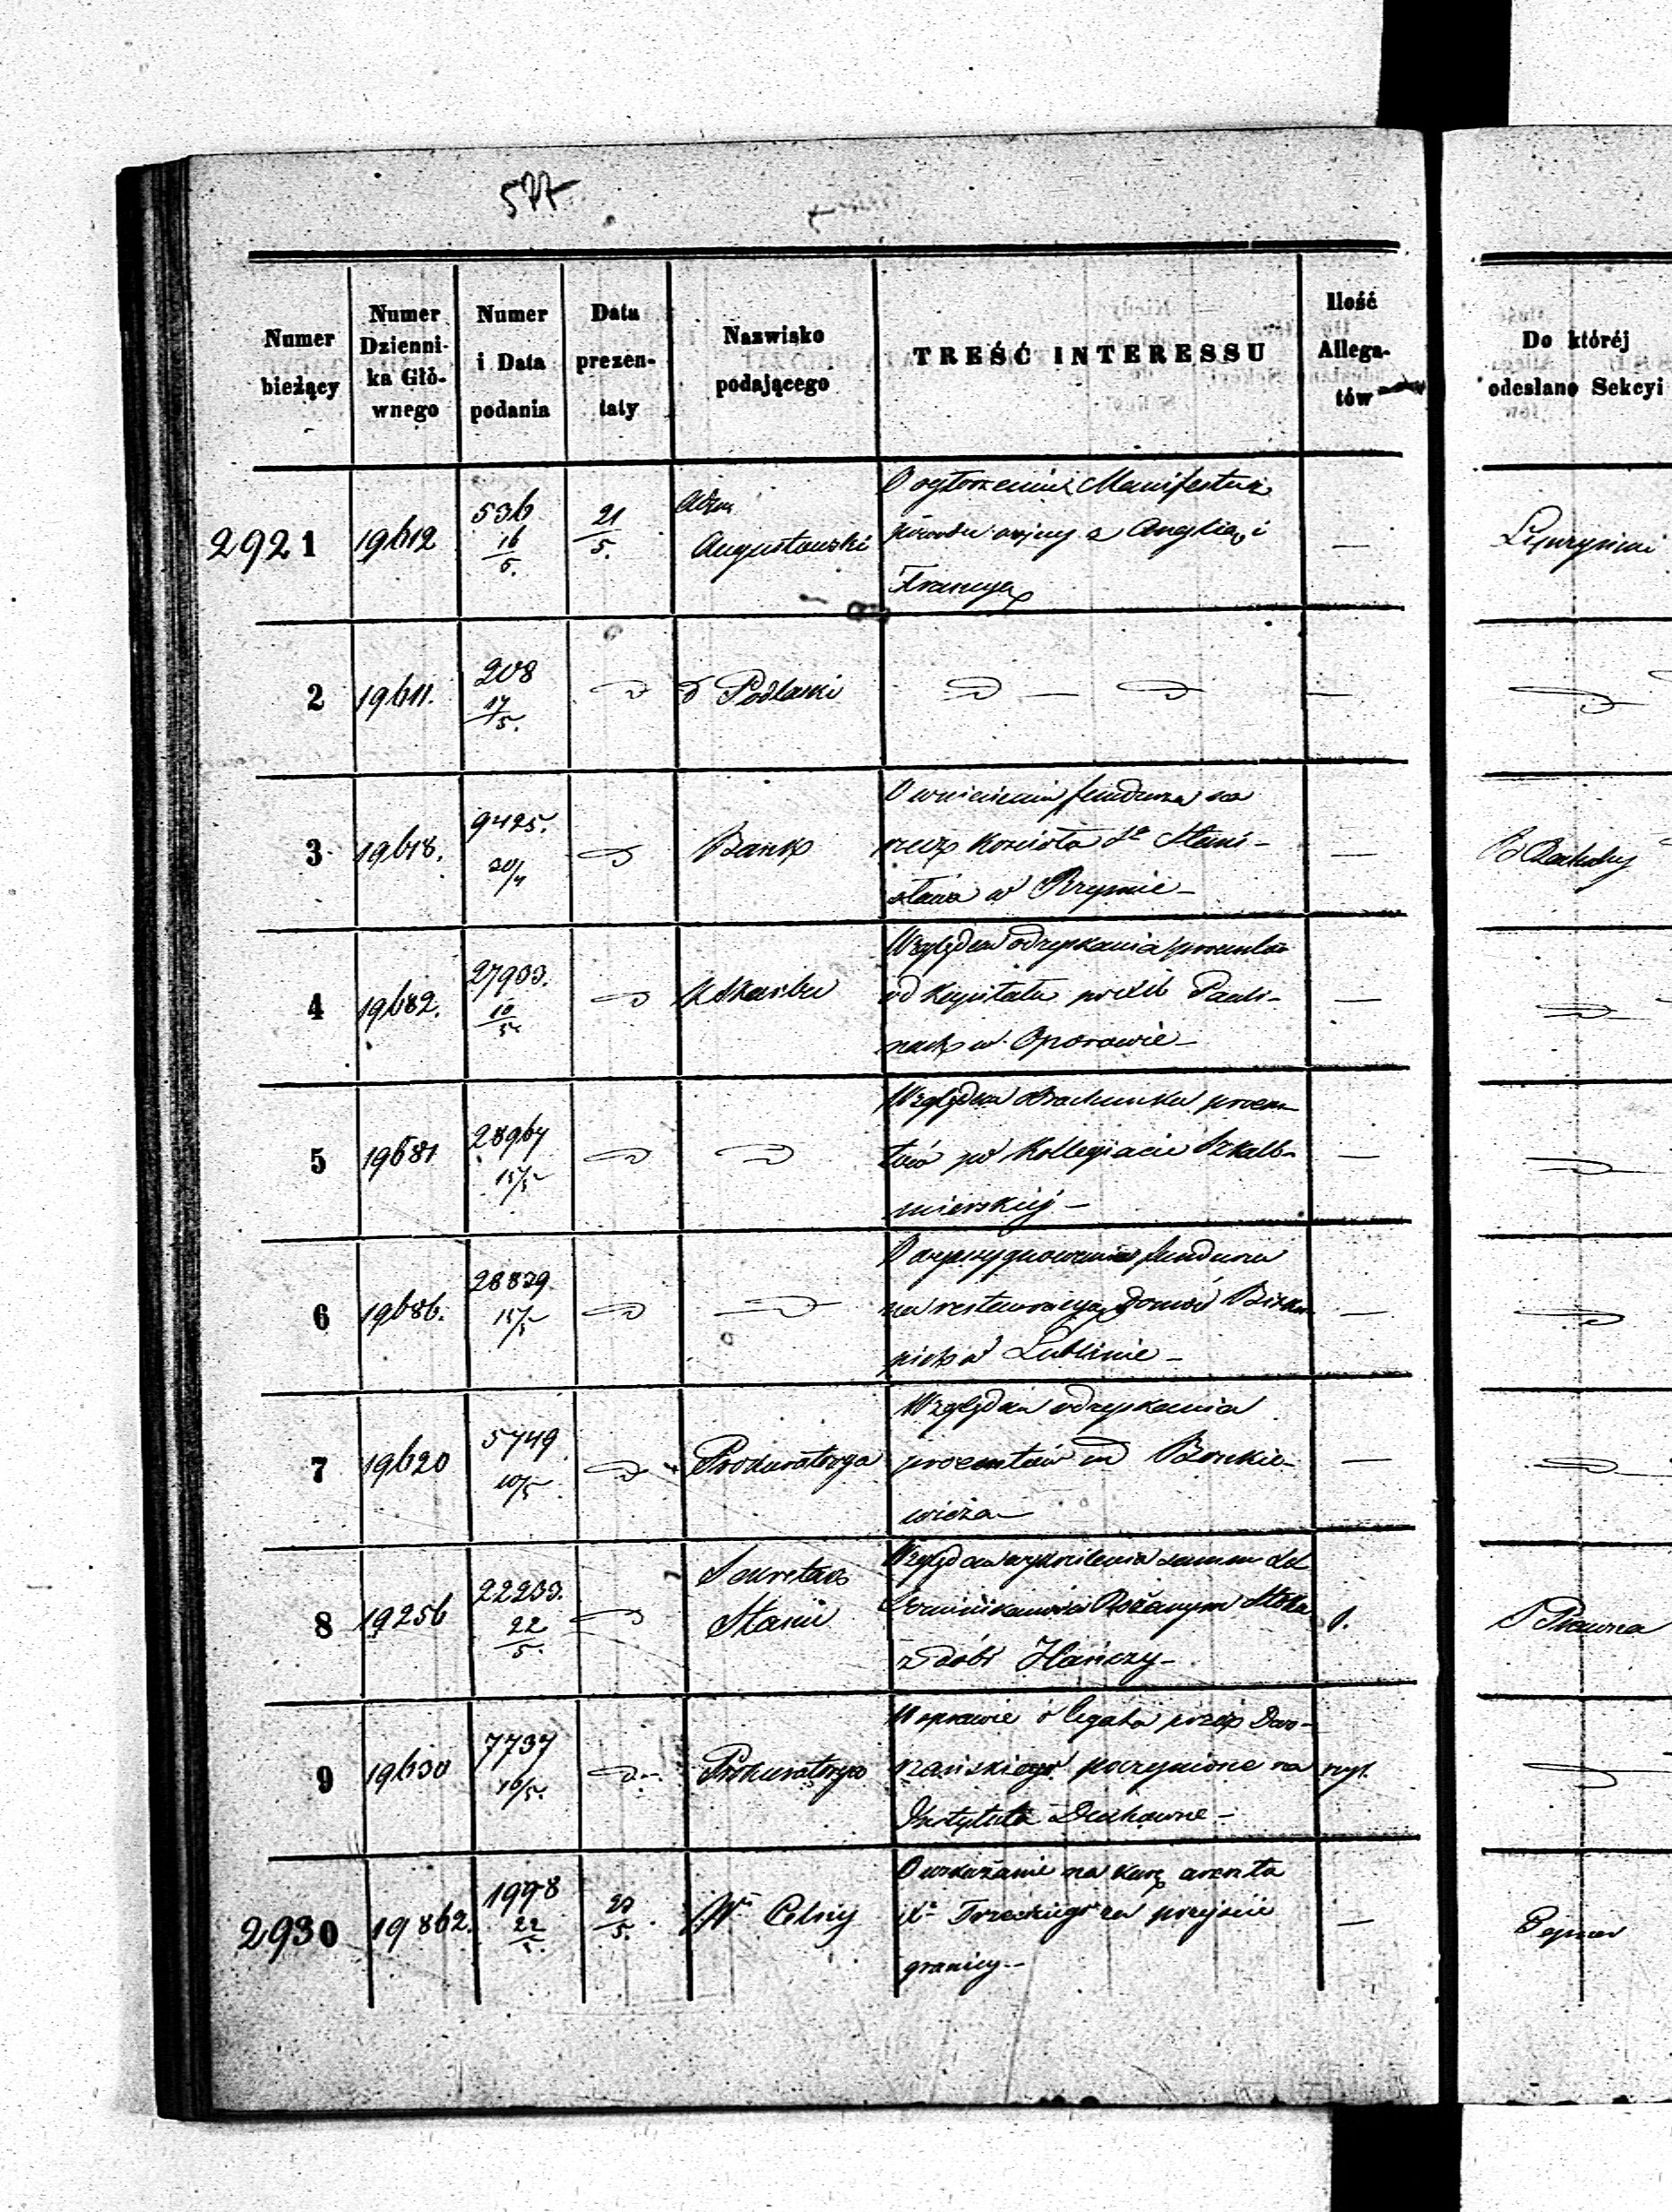 577
Numer bieżący
Numer Dzienni-ka Głó-wnego
Numer i Data podania
Data prezen-taty
Nazwisko podającego
TREŚĆ INTERESSU
Ilość Allega-tów
Do któréj odesłano Sekcyi
2921 19612 536 16/5. 21/5. Adm Augustowski
O ogłoszeniu Manifestu z
powodu wojny z Anglią i
Francyą
—
2 19611. 208 17/5. d Podlaski
—
3 19618. 9425. 20/4 Bank
O wniesieniu funduszu na
rzecz Kościoła Sº Stani-
sława w Rzymie —
—
4 19682. 27933. 10/5. K Skarbu
Względem odzyskania procentów
od Kapitału po XX Pauli-
nach w Oporowie —
—
5 19681 28967 15/5
Względem obrachunku procen
tów po Kollegiacie Szkalb-
mierskiej —
—
6 19686. 28829. 15/5
O assygnowanie funduszu
na restauracyą Domów
w Lublinie —
—
7 19620 5749 10/5 Prokuratorya
Względem odzyskania
procentów od Borkie-
wicza —
—
8 19256 22233. 22/5. Sekretarz Stanu
Względem wykreślenia summ
Dominikanów Różanym
z dóbr Hańczy —
1.
P Prawna
9 19630 7737 16/5. Prokuratorya
W sprawie o legata przez Dwo-
rzańskiego poczynione na
Instytuta Duchowne —
2930 19862. 1998 22/5. Celny
O wskazanie na karę areszta
Xª Trzeskiego za przejście
granicy —
—